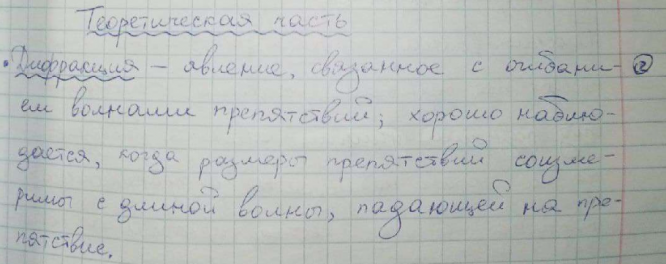 Теоретическая часть
• Дифракция – явление, связанное с огибани- ②
ем волнами препятствий; хорошо наблю-
дается, когда размеры препятствий соизме-
римы с длиной волны, падающей на пре-
пятствие.